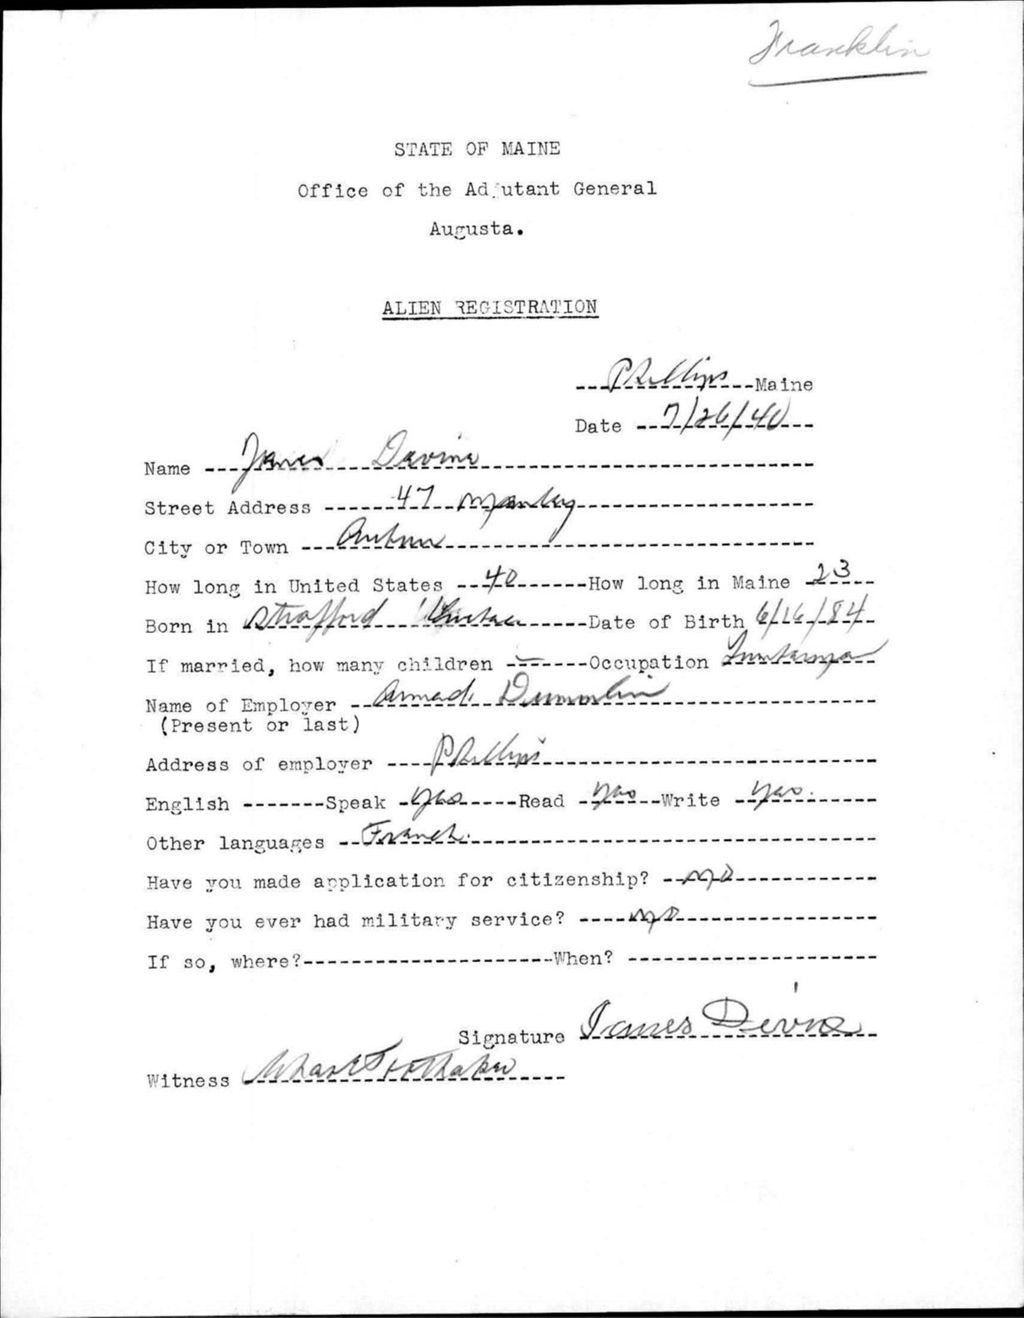 Franklin
STATE OF MAINE
Office of the Adjutant General
Augusta.
ALIEN REGISTRATION
Phillips Maine
Date 7/26/40
Name James Devine
Street Address 47 Manley
City or Town Auburn
How long in United States 40 How long in Maine 23
Born in Strafford Date of Birth 6/16/84
If married, how many children - Occupation
Name of Employer Armad
(Present or last)
Address of employer Phillips
English Speak yes Read yes Write yes.
Other languages French.
Have you made application for citizenship? no
Have you ever had military service? no
If so, where? When?
Signature James Devine
Witness